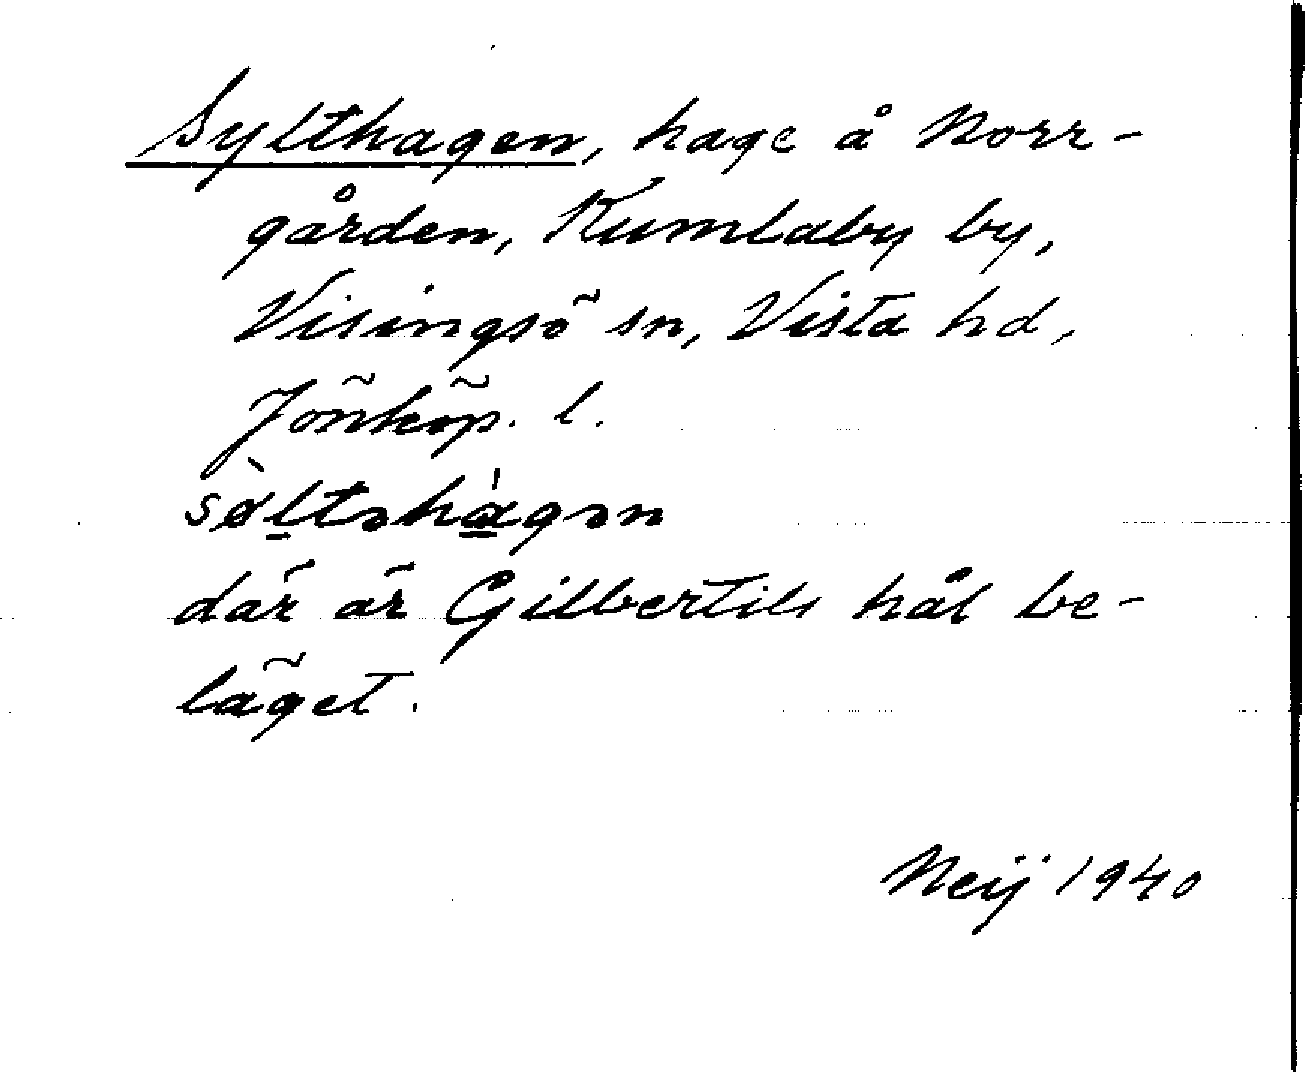 Sylthagen, hage å Norr-
gården, Kumlaby by,
Visingsö sn, Vista hd,
Jönköp. l.
sø̀ltəhàgən
där är Gilbertils hål be-
läget.
Neij 1940